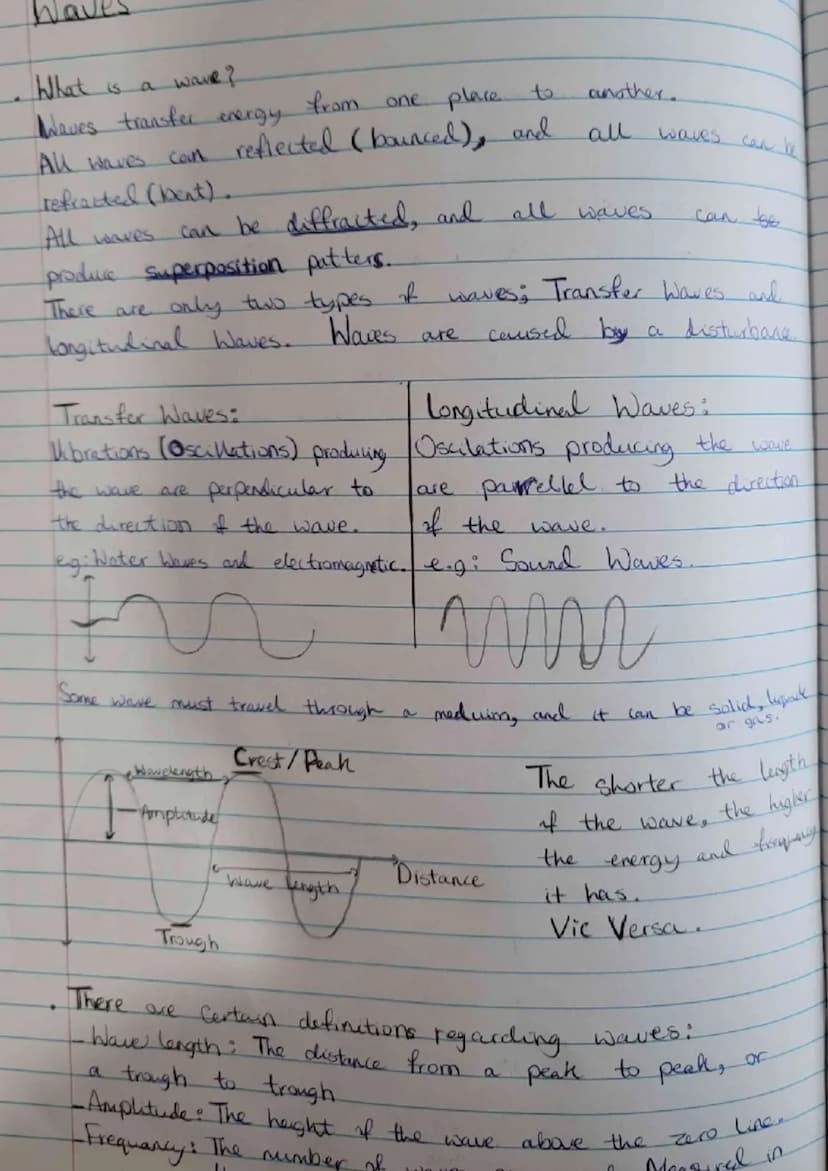 Waves
. What is a wave?
Waves transfer energy from one place to another.
All waves can reflected (bounced), and all waves can be
refracted (bent).
All waves can be diffracted, and all waves can be
produce superposition patters.
There are only two types of waves; Transfer Waves and
Longitudinal Waves. Waves are caused by a disturbance.
Transfer Waves:
Vibrations (Oscillations) producing
the wave are perpendicular to
the direction of the wave.
eg: Water Waves and electromagnetic.
Longitudinal Waves:
Osculations producing the wave
are parrellel to the direction
of the wave.
e.g: Sound Waves.
Some wave must travel through a meduim, and it can be solid,
or gas.
Wavelength
Crest/Peak
Amplitude
Wave length
Distance
Trough
The shorter the length
of the wave, the higher
the energy and frequency
it has.
Vic Versa.
. There are certain definitions regarding waves:
- Wave length: The distance from a peak to peak, or
a trough to trough
- Amplitude: The height of the wave above the zero line.
- Frequancy: The number of Measured in